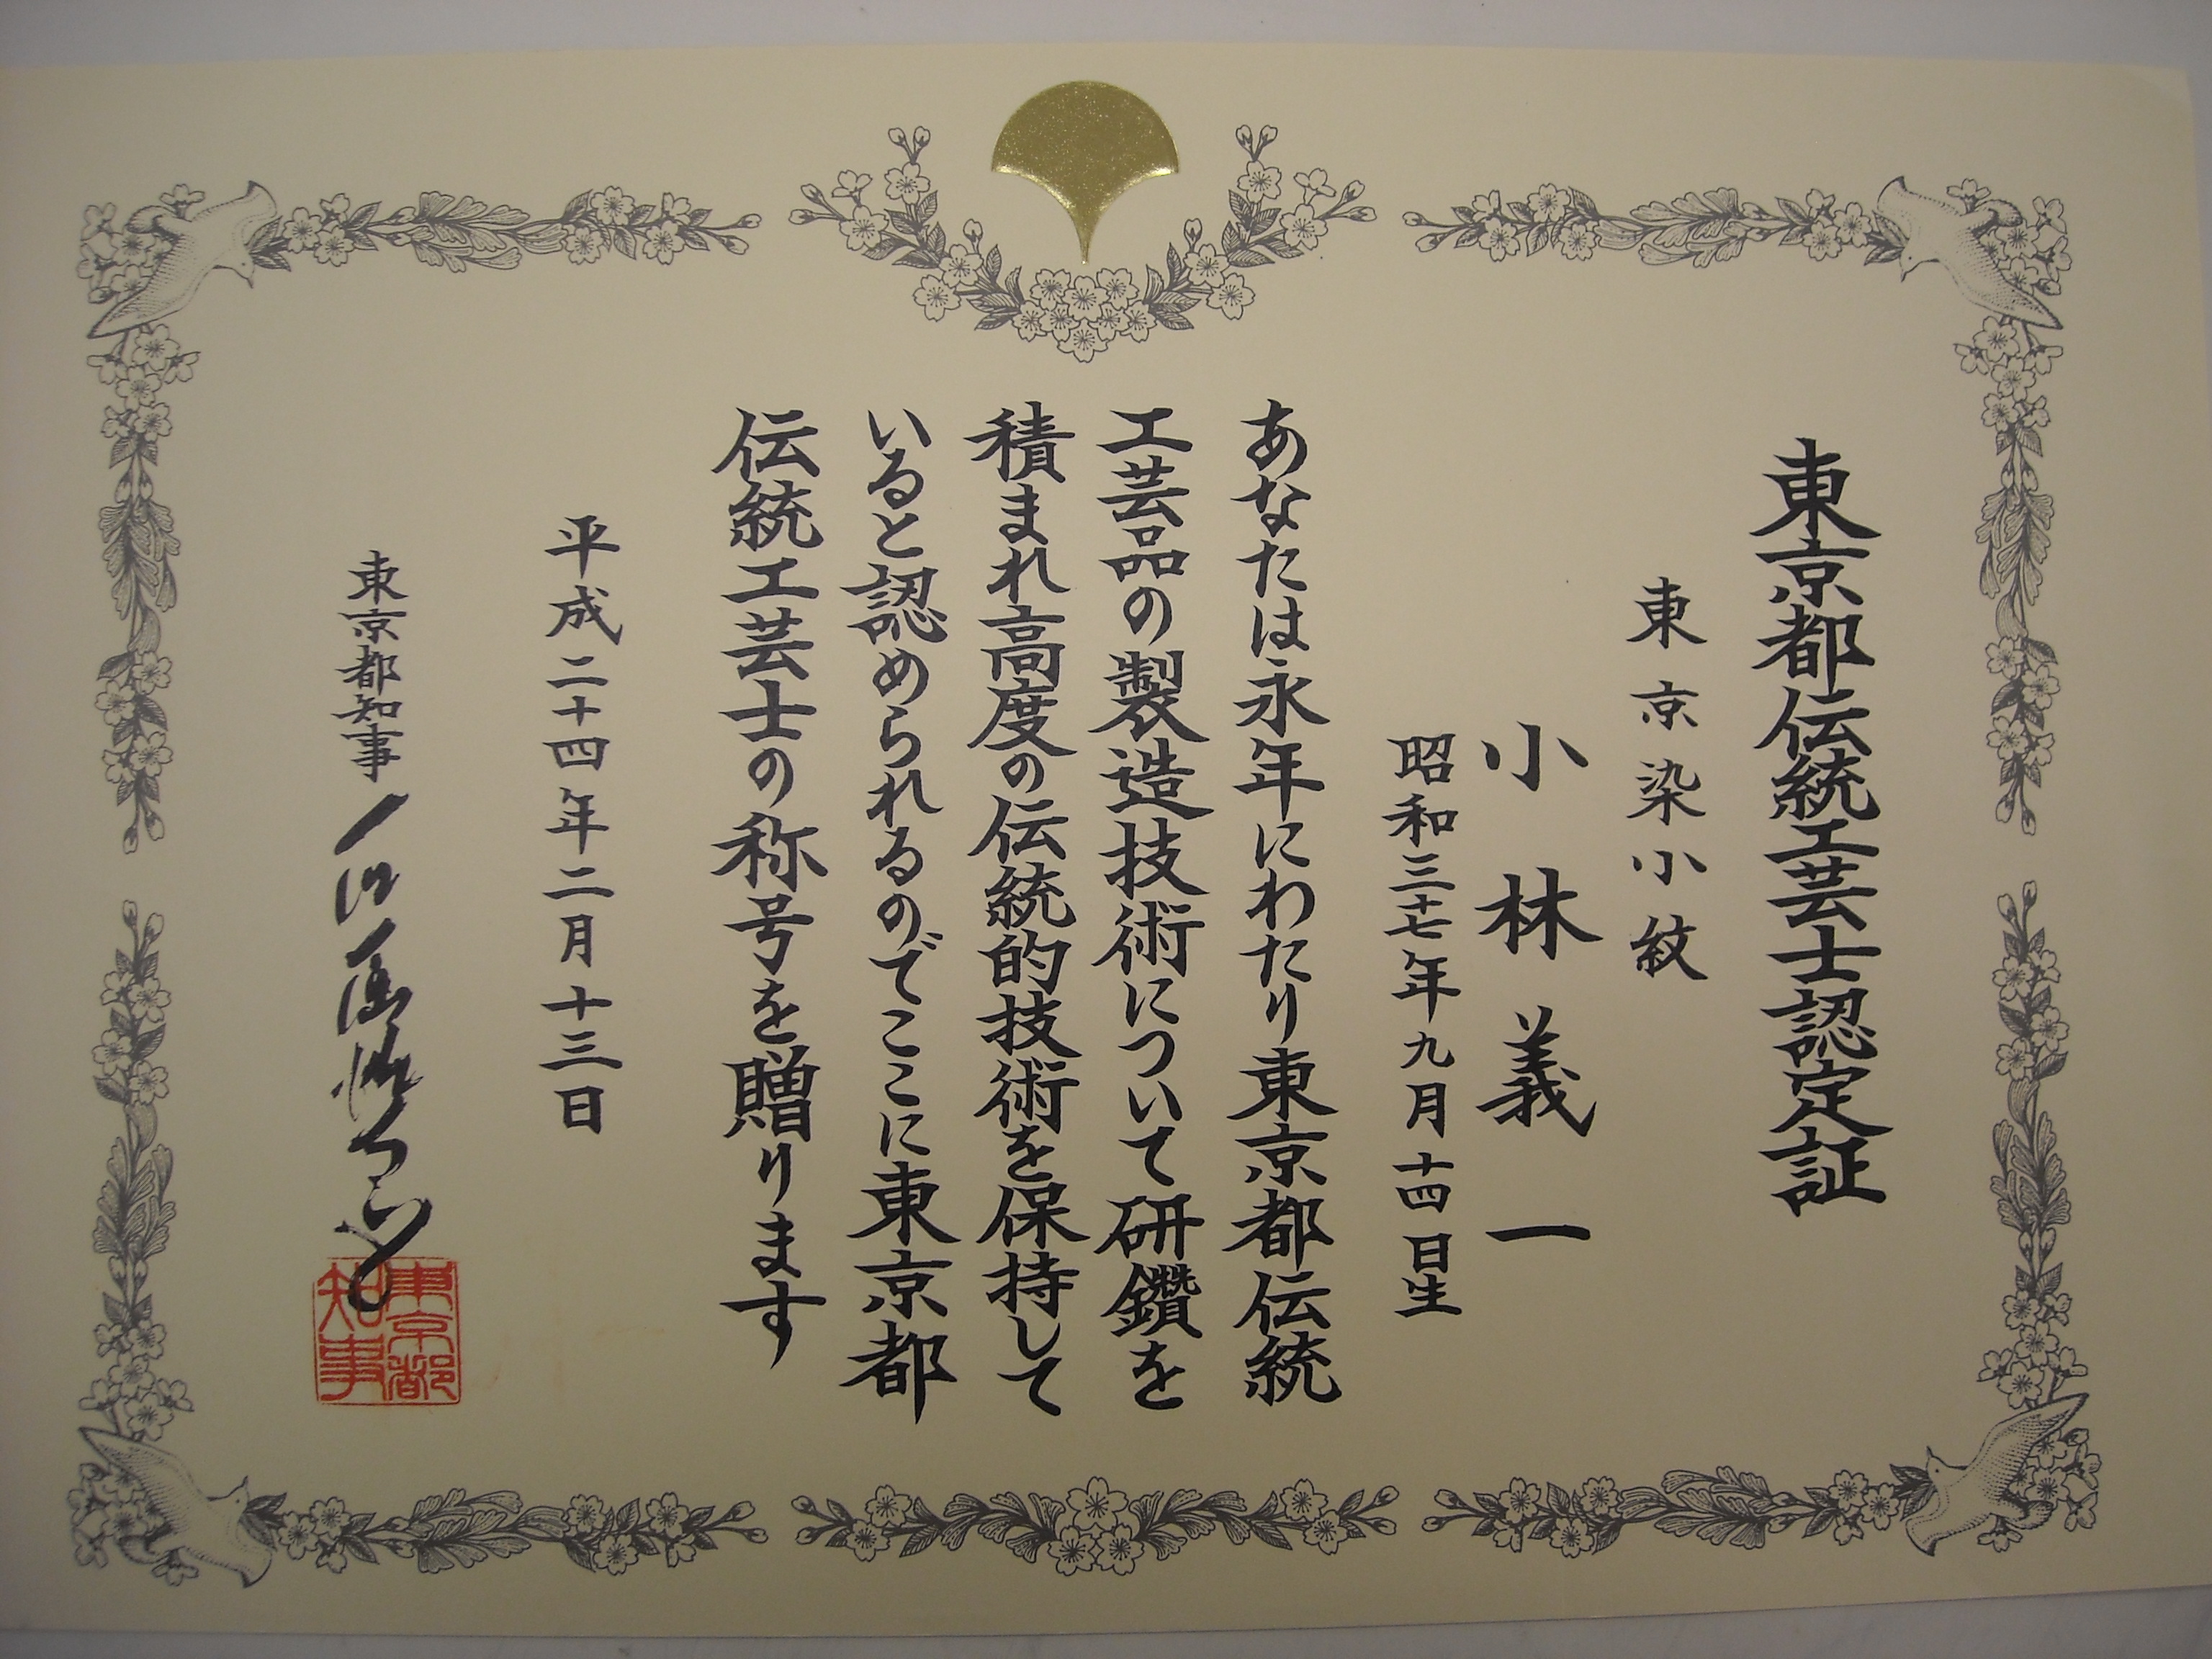 東京都伝統工芸士認定証
東京染小紋
小林義一
昭和三十七年九月十四日生
あなたは永年にわたり東京都伝統
工芸品の製造技術について研鑽を
積まれ高度の伝統的技術を保持して
いると認められるのでここに東京都
伝統工芸士の称号を贈ります
平成二十四年二月十三日
東京都知事
東京都
知事